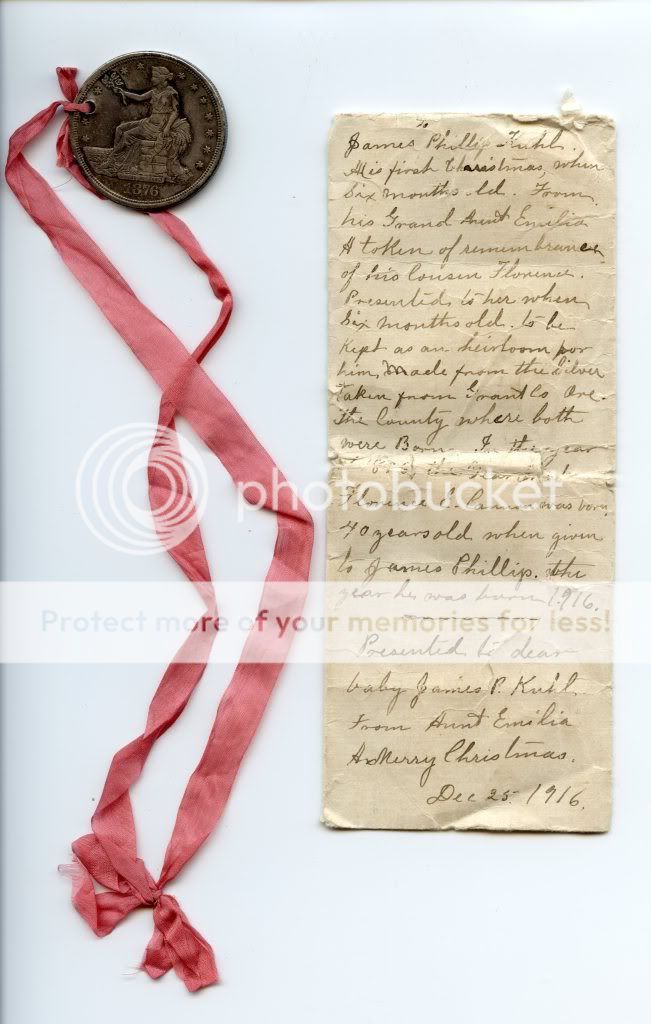 1876
To
James Phillip Kuhl.
His first Christmas, when
Six months old. From
his Grand Aunt Emilia
A token of remembrance
of his Cousin Florence.
Presented to her when
Six months old. to be
Kept as an heirloom for
him, Made from the Silver
taken from Grant Co Ore.
the County where both
were Born. In the year
Florence was born,
40 years old when given
to James Phillip. the
year he was born 1916.
Presented to dear
baby James P. Kuhl
From Aunt Emilia
A Merry Christmas.
Dec 25 1916.
photobucket
Protect more of your memories for less!